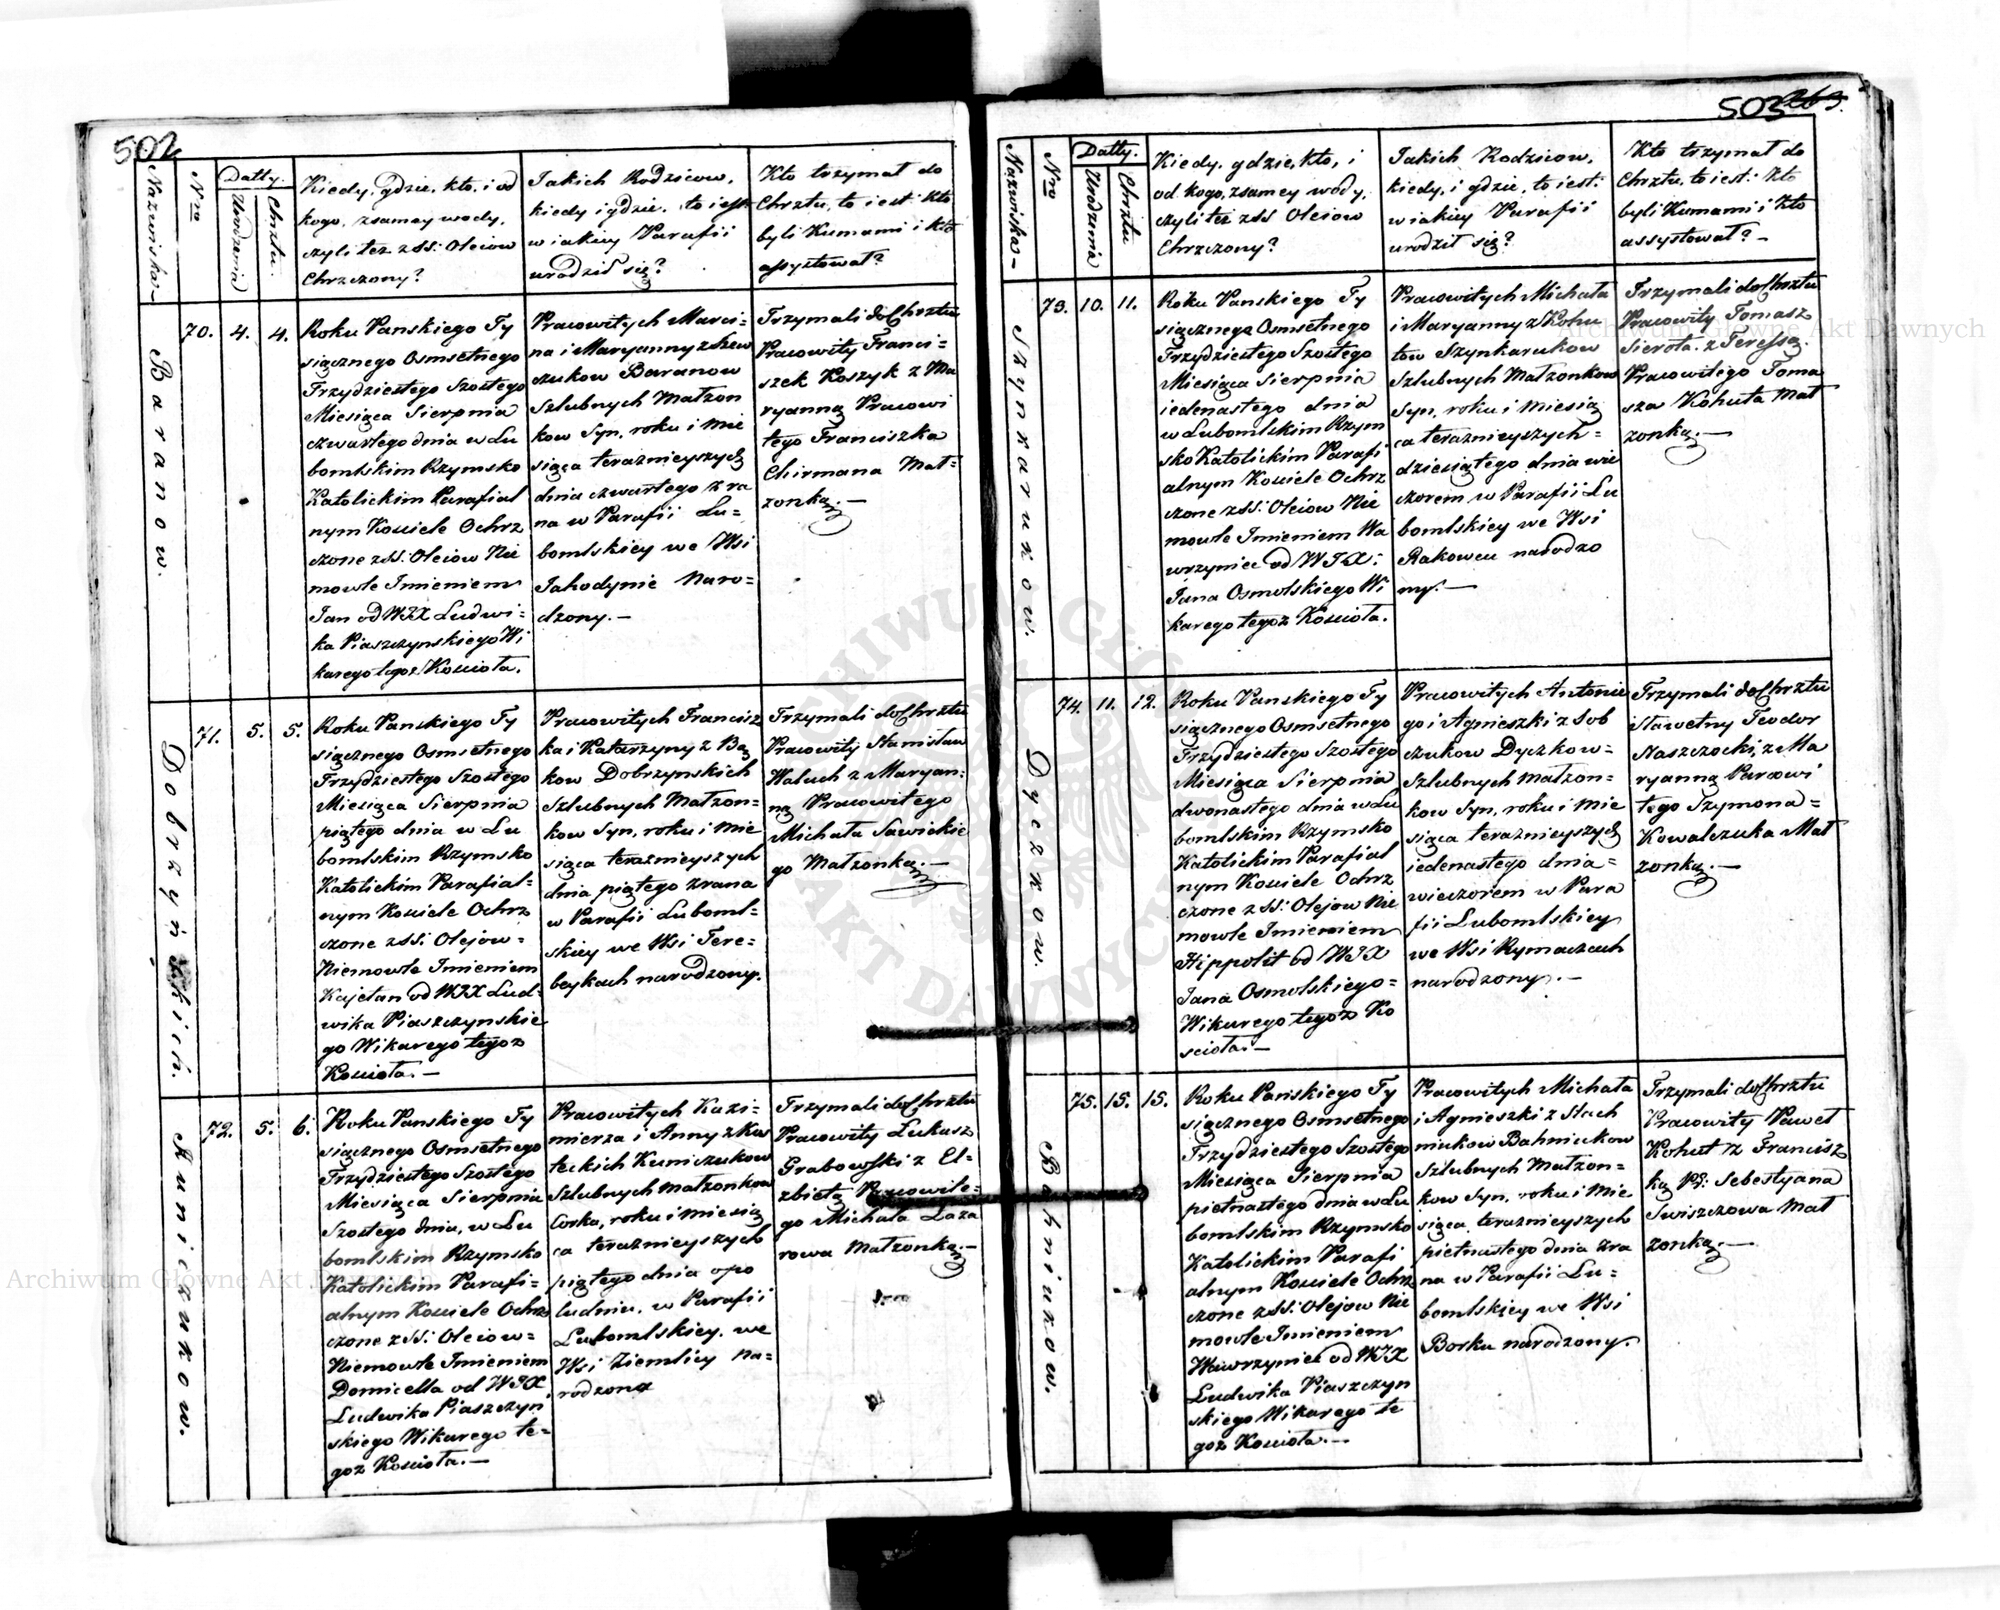 502
Nazwisko.
Nro
Datty.
Urodzenia
Chrztu.
Kiedy, gdzie, kto, i od
kogo, z samey wody,
czyli tez z SS: Oleiow
Chrzczony?
Jakich Rodzicow,
kiedy i gdzie, to iest:
w iakiey Parafii
urodził się?
Kto trzymał do
Chrztu, to iest: kto
byli Kumami i kto
assystował?
Baranow.
70.
4.
4.
Roku Panskiego Ty
siącznego Osmsetnego
Trzydziestego Szostego
Miesiąca Sierpnia
czwartego dnia w Lu
bomlskim Rzymsko
Katolickim Parafial
nym Kosciele Ochrz
czone z SS: Oleiow Nie
mowle Imieniem
Jan od WJX Ludwi-
ka Piaszczynskiego Wi
karego tegoz Koscioła.
Pracowitych Marci-
na i Maryanny z Szew
czukow Baranow
Szlubnych Małzon
kow Syn, roku i Mie
siąca teraznieyszych
dnia czwartego z ra
na w Parafii Lu-
bomlskiey we Wsi
Jahodynie Naro-
dzony.-
Trzymali do Chrztu
Pracowity Franci-
szek Koszyk z Ma
ryanną Pracowi
tego Franciszka
Chirmana Mał-
zonką.-
Dobrzyńskich.
71.
5.
5.
Roku Panskiego Ty
siącznego Osmsetnego
Trzydziestego Szostego
Miesiąca Sierpnia
piątego dnia w Lu
bomlskim Rzymsko
Katolickim Parafial-
nym Kosciele Ochrz
czone z SS: Olejow-
Niemowle Imieniem
Kajetan od WJX Lud-
wika Piaszczynskie
go Wikarego tegoz
Kosciola.-
Pracowitych Francisz
ka i Katarzyny z Bą
kow Dobrzynskich
Szlubnych Małzon-
kow Syn, roku i Mie
siąca teraznieyszych
dnia piątego zrana
w Parafii Luboml-
skiey we Wsi Tere-
beykach narodzony.
Trzymali do Chrztu
Pracowity Stanisław
Waluch z Maryan-
ną Pracowitego
Michała Sawickie
go Małzonką.-
Kuniczukow.
72.
5.
6.
Roku Panskiego Ty
siącznego Osmsetnego
Trzydziestego Szostego
Miesiąca Sierpnia
Szostego dnia, w Lu
bomlskim Rzymsko
Katolickim Parafi-
alnym Kosciele Ochrz
czone z SS: Oleiow-
Niemowle Imieniem
Domicella od WJX
Ludwika Piaszczyn
skiego Wikarego te-
goz Kosciola.-
Pracowitych Kazi-
mierza i Anny z Kos
teckich Kuniczukow
Szlubnych Małzonkow
Corka, roku i miesią
ca teraznieyszych
piątego dnia opo
ludniu, w Parafii
Lubomlskiey, we
Wsi Ziemlicy Na-
rodzona
Trzymali do Chrztu
Pracowity Łukasz
Grabowski z El-
zbietą Pracowite-
go Michała Łaza
rowa Małzonką.-
503
Nazwiska-
Nro
Datty.
Urodzenia
Chrztu
Kiedy, gdzie, kto, i
od kogo, z samey wody,
czyli tez z SS Oleiow
Chrzczony?
Jakich Rodzicow,
kiedy, i gdzie, to iest:
w iakiey Parafii
urodził się?
Kto trzymał do
Chrztu, to iest: Kto
byli Kumami i Kto
assystował?-
Szynkarukow.
73.
10.
11.
Roku Panskiego Ty
siącznego Osmsetnego
Trzydziestego Szostego
Miesiąca Sierpnia
iedenastego dnia
w Lubomlskim Rzym
sko Katolickim Parafi
alnym Kosciele Ochrz
czone z SS: Oleiow Nie
mowle Imieniem Wa
wrzyniec od WJX:
Jana Osmolskiego Wi
karego tegoz Kosciola.
Pracowitych Michała
i Maryanny z Kohu
tow Szynkarukow
Szlubnych Małzonkow
Syn, roku i Miesią
ca teraznieyszych-
dziesiątego dnia wie
czorem w Parafii Lu
bomlskiey we Wsi
Rakowcu narodzo
ny.-
Trzymali do Chrztu
Pracowity Tomasz
Sierota z Teressą
Pracowitego Toma
sza Kohuta Mał
zonką.-
Dyczkow.
74.
11.
12.
Roku Panskiego Ty
siącznego Osmsetnego
Trzydziestego Szostego
Miesiąca Sierpnia
dwonastego dnia w Lu
bomlskim Rzymsko
Katolickim Parafial
nym Kosciele Ochrz
czone z SS: Olejow Nie
mowle Imieniem
Hippolit od WJX
Jana Osmolskiego-
Wikarego tegoz Ko
sciola.-
Pracowitych Antonie
go i Agnieszki z Sob
czukow Dyczkow-
Szlubnych Małzon-
kow Syn, roku i Mie
siąca teraznieyszych
iedenastego dnia-
wieczorem w Para
fii Lubomlskiey
we Wsi Rymaczach
narodzony.-
Trzymali do Chrztu
Sławetny Teodor
Naszczocki z Ma
ryanną Pracowi
tego Szymona-
Kowalczuka Mał
zonką.-
Bahniukow.
75.
15.
15.
Roku Pańskiego Ty
siącznego Osmsetnego
Trzydziestego Szostego
Miesiąca Sierpnia
piętnastego dnia w Lu
bomlskim Rzymsko
Katolickim Parafi
alnym Kosciele Ochrz
czone z SS: Olejow Nie
mowle Imieniem
Wawrzyniec od WJX
Ludwika Piaszczyn
skiego Wikarego te
goz Kosciola.-
Pracowitych Michała
i Agnieszki z Stach
niukow Bahniukow
Szlubnych Małzon-
kow Syn, roku i Mie
siąca teraznieyszych
piętnastego dnia zra
na w Parafii Lu-
bomlskiey we Wsi
Borku narodzony.
Trzymali do Chrztu
Pracowity Paweł
Kohut z Francisz
ką Pr: Sebestyana
Swiszczowa Mał
zonką.-
Archiwum Główne Akt Dawnych
Archiwum Główne Akt Dawnych
ARCHIWUM GŁÓWNE
AKT DAWNYCH